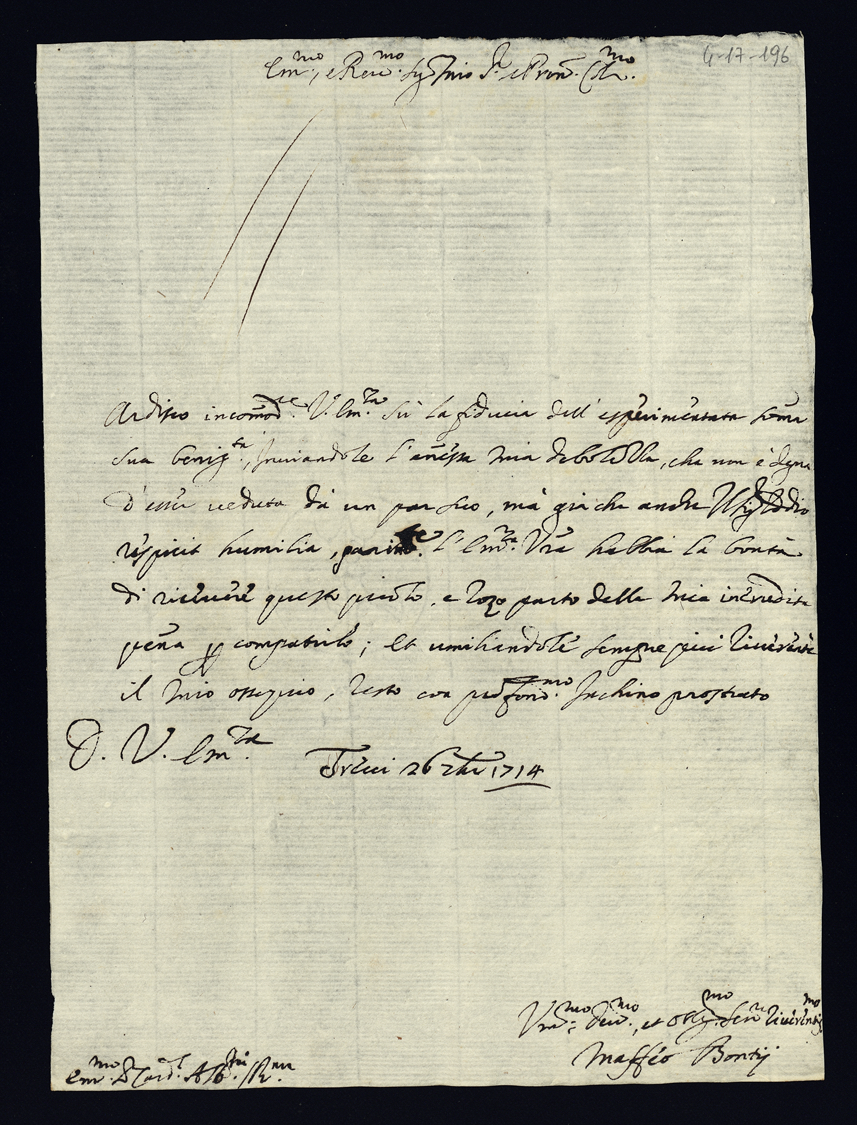 4-17-196
Em.mo, e Rev.mo Sig.r mio S.r e Pron. Col.mo
Ardisco incomod.re V. Em.za sù la fiducia dell'esperimentata somma
sua benig.tà, inviandole l'annessa mia debolezza, che non è degna
d'esser veduta dà un par suo, mà già che anche Iddio
respicit humilia, l'Em.za Vra habbia la bontà
di ricevere questo piccolo, e rozo parto della mia inerudita
penna per compatirlo; et umiliandole sempre più riverente
il mio ossequio, resto con profond.mo inchino prostrato
D. V. Em.za
Trevi 26 7bre 1714
Um.mo Dev.mo, et Obl.mo Ser.re riverentis.mo
Maffeo Bontij
Em.mo S. Card.l Alb.ni